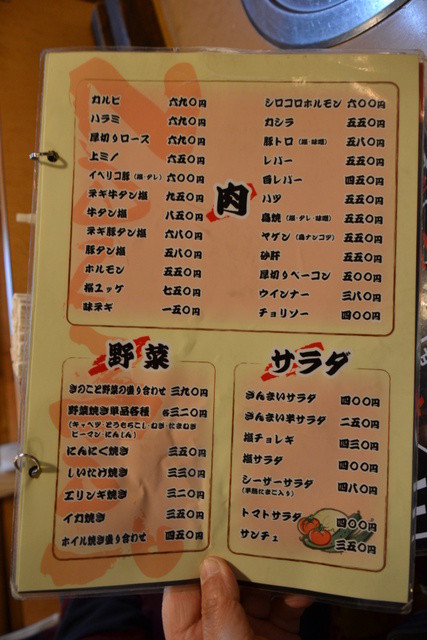 肉
カルビ 六九〇円
ハラミ 六九〇円
厚切りロース 六九〇円
上ミノ 六五〇円
イベリコ豚(塩・タレ) 六〇〇円
ネギ牛タン塩 九五〇円
牛タン塩 八五〇円
ネギ豚タン塩 六八〇円
豚タン塩 五八〇円
ホルモン 五五〇円
桜ユッケ 七五〇円
味ネギ 一五〇円
シロコロホルモン 六〇〇円
カシラ 五五〇円
豚トロ(塩・味噌) 五八〇円
レバー 五五〇円
白レバー 四五〇円
ハツ 五五〇円
鳥焼(塩・タレ・味噌) 五五〇円
ヤゲン(鳥ナンコツ) 五五〇円
砂肝 五五〇円
厚切りベーコン 五〇〇円
ウインナー 三八〇円
チョリソー 四〇〇円
野菜
きのこと野菜の盛り合わせ 三九〇円
野菜焼き単品各種 各三二〇円
(キャベツ・とうもろこし・ねぎ・たまねぎ
ピーマン・にんじん)
にんにく焼き 三五〇円
しいたけ焼き 三三〇円
エリンギ焼き 三二〇円
イカ焼き 三五〇円
ホイル焼き盛り合わせ 四五〇円
サラダ
さんまいサラダ 四〇〇円
さんまい半サラダ 二五〇円
塩チョレギ 四三〇円
塩サラダ 四〇〇円
シーザーサラダ 四八〇円
(半熟たまご入り)
トマトサラダ 四〇〇円
サンチェ 三五〇円